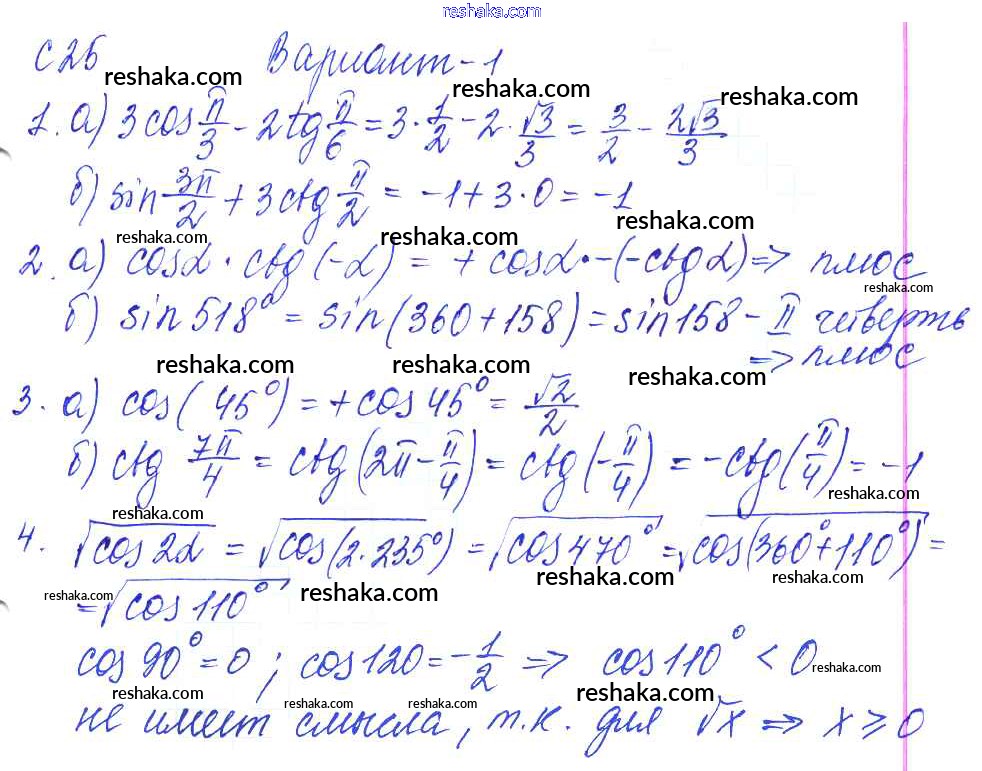 reshaka.com
С 25 Вариант-1
reshaka.com reshaka.com reshaka.com
1. а) 3 cos π/3 - 2 tg π/6 = 3 · 1/2 - 2 · √3/3 = 3/2 - 2√3/3
б) sin 3π/2 + 3 ctg π/2 = -1 + 3 · 0 = -1
reshaka.com reshaka.com reshaka.com
2. а) cos α · ctg (-α) = + cos α · -(-ctg α) => плюс
reshaka.com
б) sin 518° = sin (360 + 158) = sin 158 - II четверть
=> плюс
reshaka.com reshaka.com reshaka.com
3. а) cos ( 45°) = + cos 45° = √2/2
б) ctg 7π/4 = ctg (2π - π/4) = ctg (-π/4) = -ctg (π/4) = -1
reshaka.com reshaka.com reshaka.com
4. √cos 2α = √cos (2 · 235°) = √cos 470° = √cos (360° + 110°) =
reshaka.com reshaka.com reshaka.com reshaka.com
= √cos 110°
cos 90° = 0 ; cos 120 = -1/2 => cos 110° < 0
reshaka.com
reshaka.com reshaka.com reshaka.com
не имеет смысла, т.к. для √x => x ≥ 0